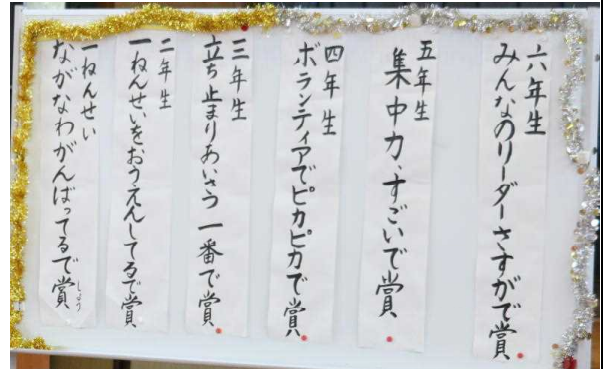 六年生
みんなのリーダーさすがで賞
五年生
集中力、すごいで賞
四年生
ボランティアでピカピカで賞
三年生
立ち止まりあいさつ一番で賞
二年生
一ねんせいをおうえんしてるで賞
一ねんせい
ながなわがんばってるで賞
しょう